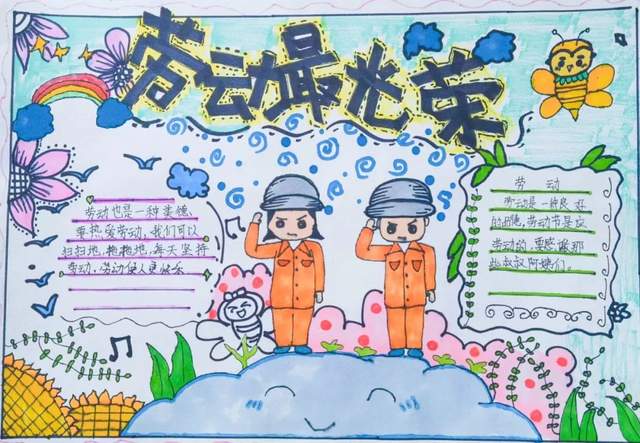 劳动最光荣
劳动也是一种美德，
要热爱劳动，我们可以
扫扫地，拖拖地，每天坚持
劳动，劳动使人更快乐
劳动
劳动是一种良好
的品德，劳动节是应
劳动的，要感谢那
些叔叔阿姨们。